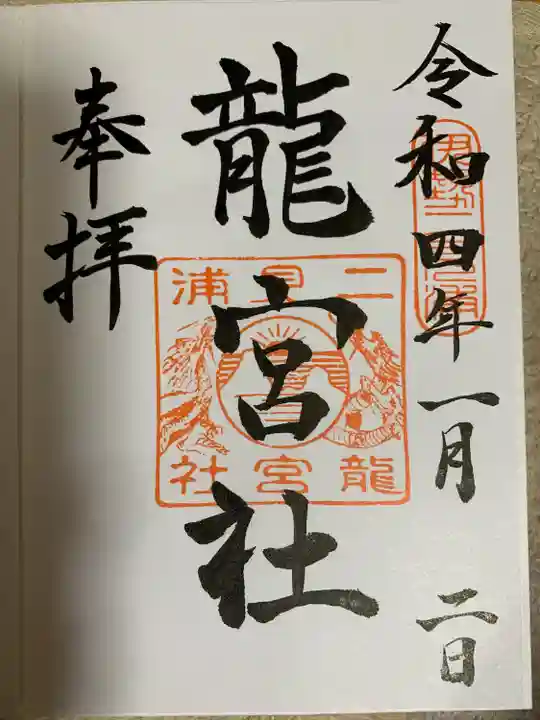 令和四年一月二日
龍宮社
奉拝
二見浦
龍宮社